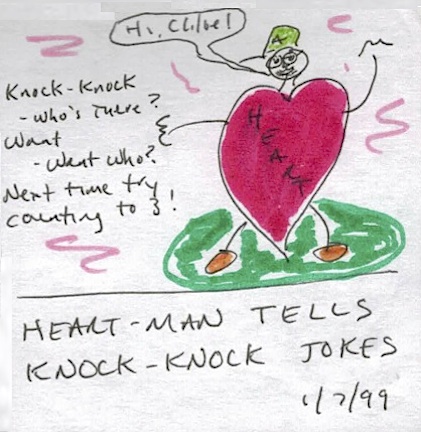 Hi, Chloe!
A
HEART
Knock-Knock
- Who's There?
Want
- Want who?
Next time try
counting to 3!
HEART-MAN TELLS
KNOCK-KNOCK JOKES
1/7/99